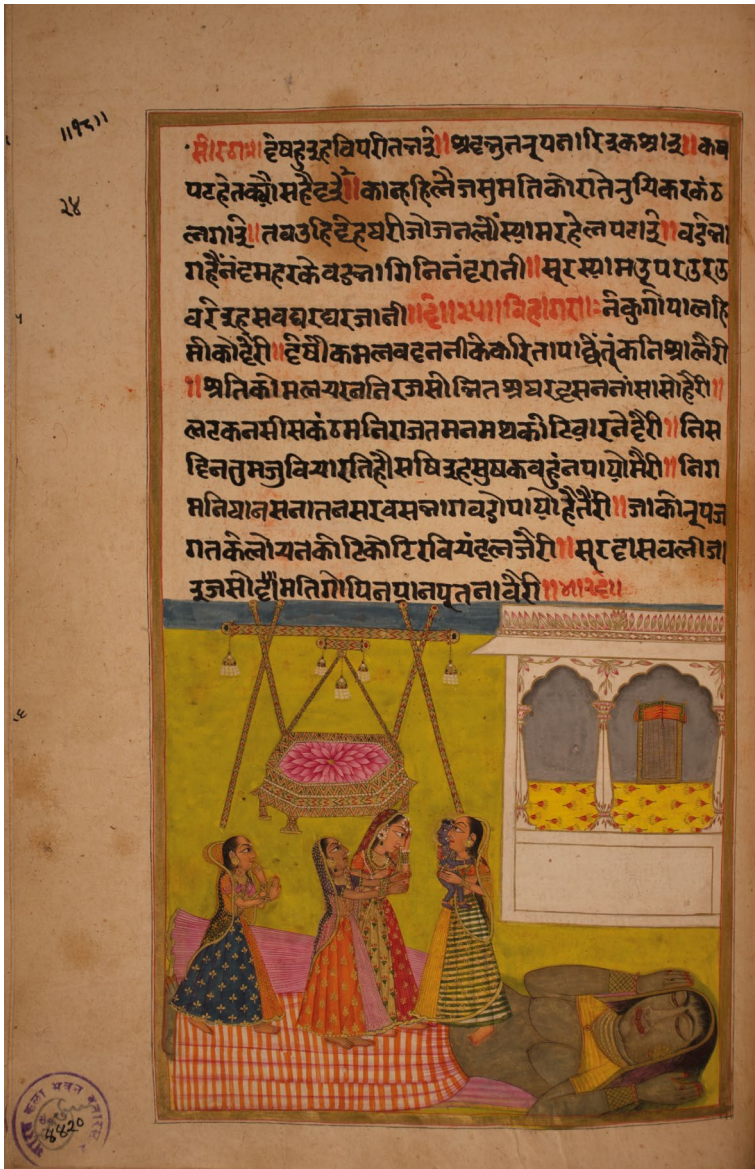 ॥१८॥
२४
सोरठा॥ देषहु इह विपरीत नई॥ अद्भुत रूप नारि इक आइ॥ कप
पट हेत क्यौ सहै दई॥ कान्हहि लै जसुमति कोराते रुचि कर कंठ
लगाई॥ तव उहि देह धरी जोजन लौं स्याम रहे लपटाई॥ वडे भा
ग हैं नंद महर के वडभागिनि नंदरानी॥ सूर स्याम उपर उर उ
वरे इह सव घर घर जानी॥ ॥२५॥ विहागरा॥ नैकु गोपालहि
मोकौ दैरी॥ देषौ कमल वदन नीके करि ता पाछै तूं कनिआ लैरी
॥ अति कोमल चरन निरज सोभित अधर दसन नासा सोहैरी॥
लटकन सीस कंठ मनि राजत मनमथ कोटि वारने दैरी॥ निस
दिन तुम जु विचारति हौ सषि इह सुष कवहुं न पायो मैरी॥ निग
म निधान सनातन सरवस भाग वडो पायो है तैरी॥ जाको रूप ज
गत के लोचन कोटि कोटि रवि चंद लजैरी॥ सूरदास वली जा
इ जसोदा मति गोपिन प्रान पूतनावैरी॥ २६॥
कला भवन बनारस
४४२०